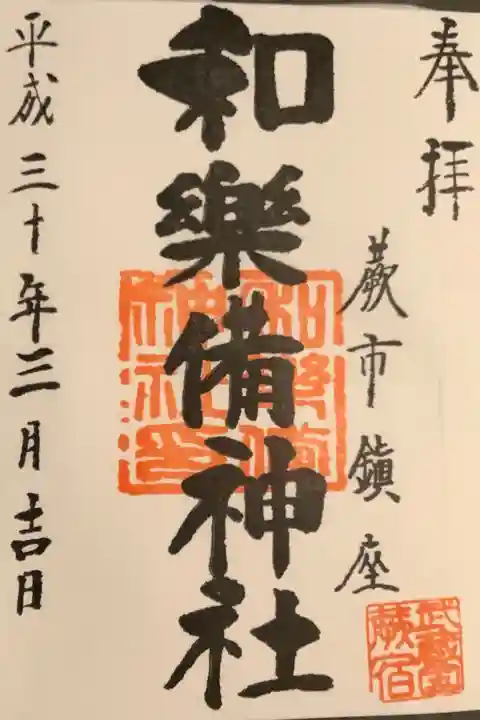 奉拝
蕨市鎮座
武蔵
蕨宿
和樂備神社
和樂備
神社印
平成三十年三月吉日